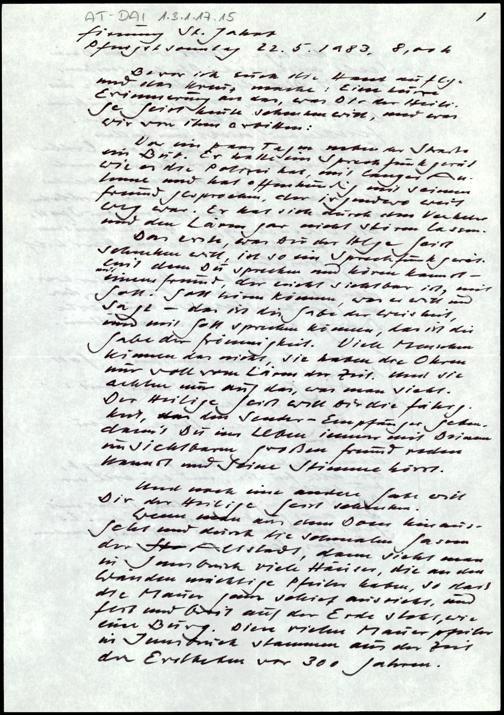 AT-DAI 1.3.1.17.15
1
Firmung St. Jakob
Pfingstsonntag 22.5.1983, 8,00 h
Bevor ich euch die Hand auflege
und das Kreuz mache: Eine kurze
Erinnerung an das, was Dir der Heili-
ge Geist heute schenken will, und was
wir von ihm erbitten:
Vor ein paar Tagen neben der Straße
ein Bub. Er hatte ein Sprechfunkgerät
wie es die Polizei hat, mit langer An-
tenne und hat offenkundig mit seinem
Freund gesprochen, der irgendwo weit
weg war. Er hat sich durch den Verkehr
und den Lärm gar nicht stören lassen.
Das erste, was Dir der Hlge Geist
schenken will, ist so ein Sprechfunkgerät.
mit dem Du sprechen und hören kannst -
mit einem Freund, der nicht sichtbar ist, mit
Gott. Gott hören können, was er will und
sagt - das ist die Gabe der Weisheit,
und mit Gott sprechen können, das ist die
Gabe der Frömmigkeit. Viele Menschen
können das nicht, sie haben die Ohren
nur voll vom Lärm der Zeit. Und sie
achten nur auf das, was man sieht.
Der Heilige Geist will Dir die Fähig-
keit, das den Sender Empfänger geben
damit Du im Leben immer mit Deinem
unsichtbaren großen Freund reden
kannst und seine Stimme hörst.
Und noch eine andere Gabe will
Dir der Heilige Geist schenken.
Wenn man aus dem Dom hinaus-
geht und durch die schmalen Gassen
der Altstadt, dann sieht man
in Innsbruck viele Häuser, die an den
Wänden mächtige Pfeiler haben, so dass
die Mauer ganz schief aussieht, und
fest und breit auf der Erde steht, wie
eine Burg. Diese vielen Mauerpfeiler
in Innsbruck stammen aus der Zeit
der Erdbeben vor 300 Jahren.